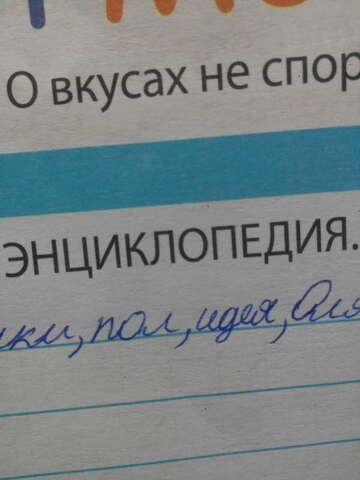 О вкусах не спор
ЭНЦИКЛОПЕДИЯ.
икл, пол, идея, Оля